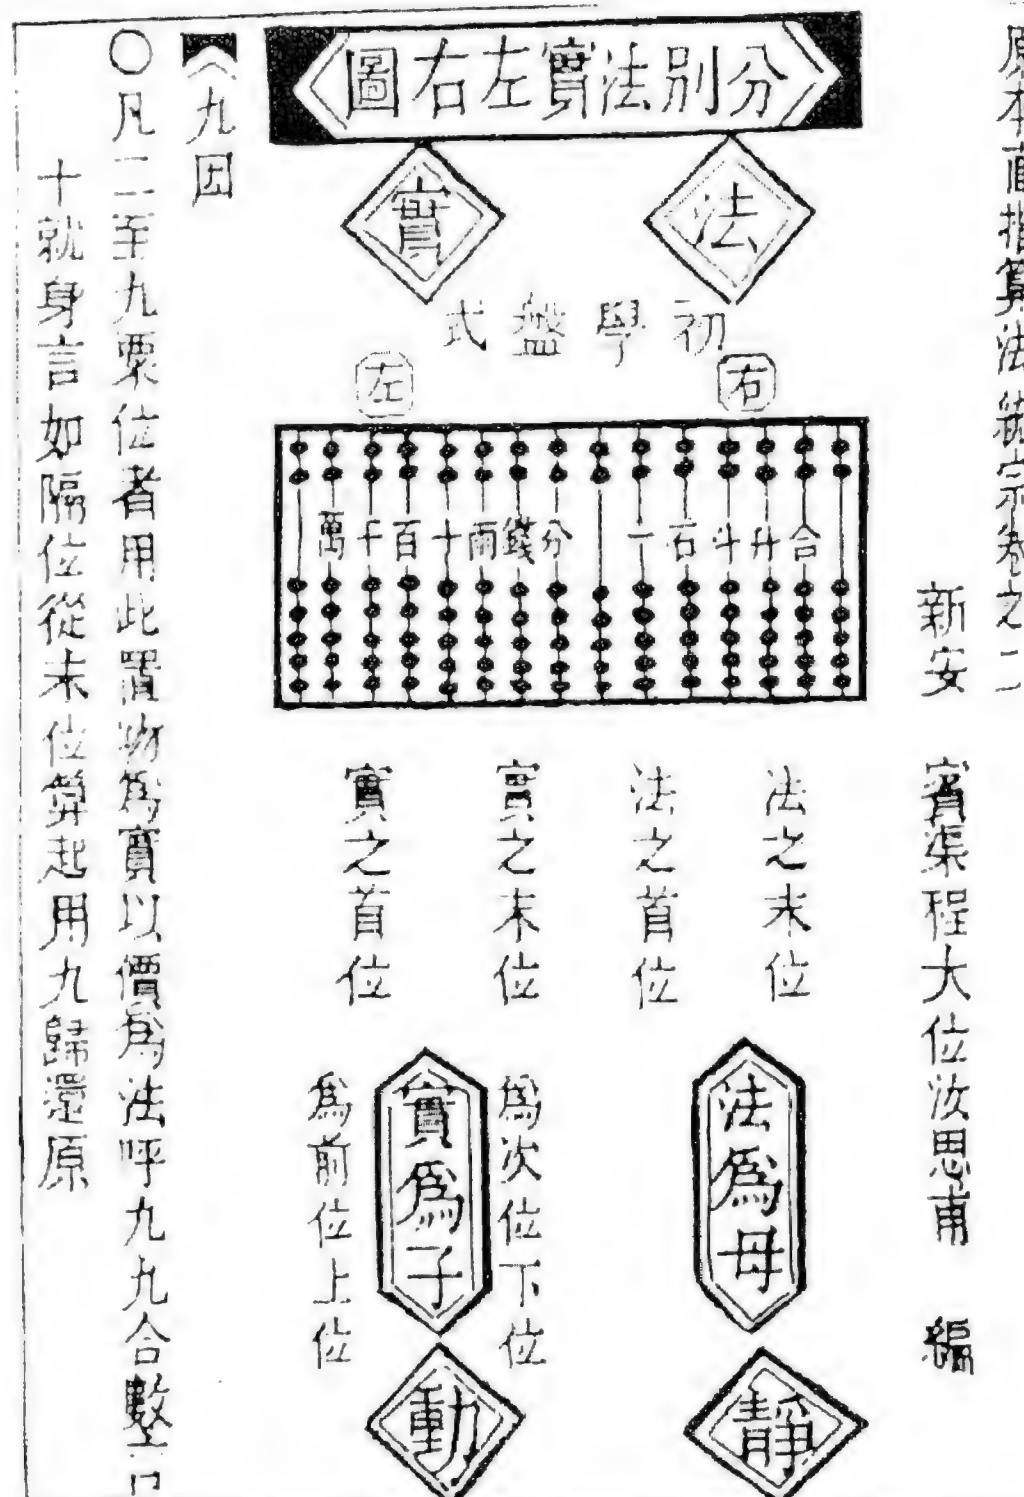 原本直指算法統宗卷之二
新安　賓渠程大位汝思甫　編
分別法實左右圖
法
實
初學盤式
右
左
合升斗石一　分錢兩十百千萬
法之末位
法之首位
實之末位
實之首位
法為母
靜
為次位下位
實為子
動
為前位上位
九因
〇凡二至九單位者用此置物為實以價為法呼九九合數言
十就身言如隔位從末位算起用九歸還原